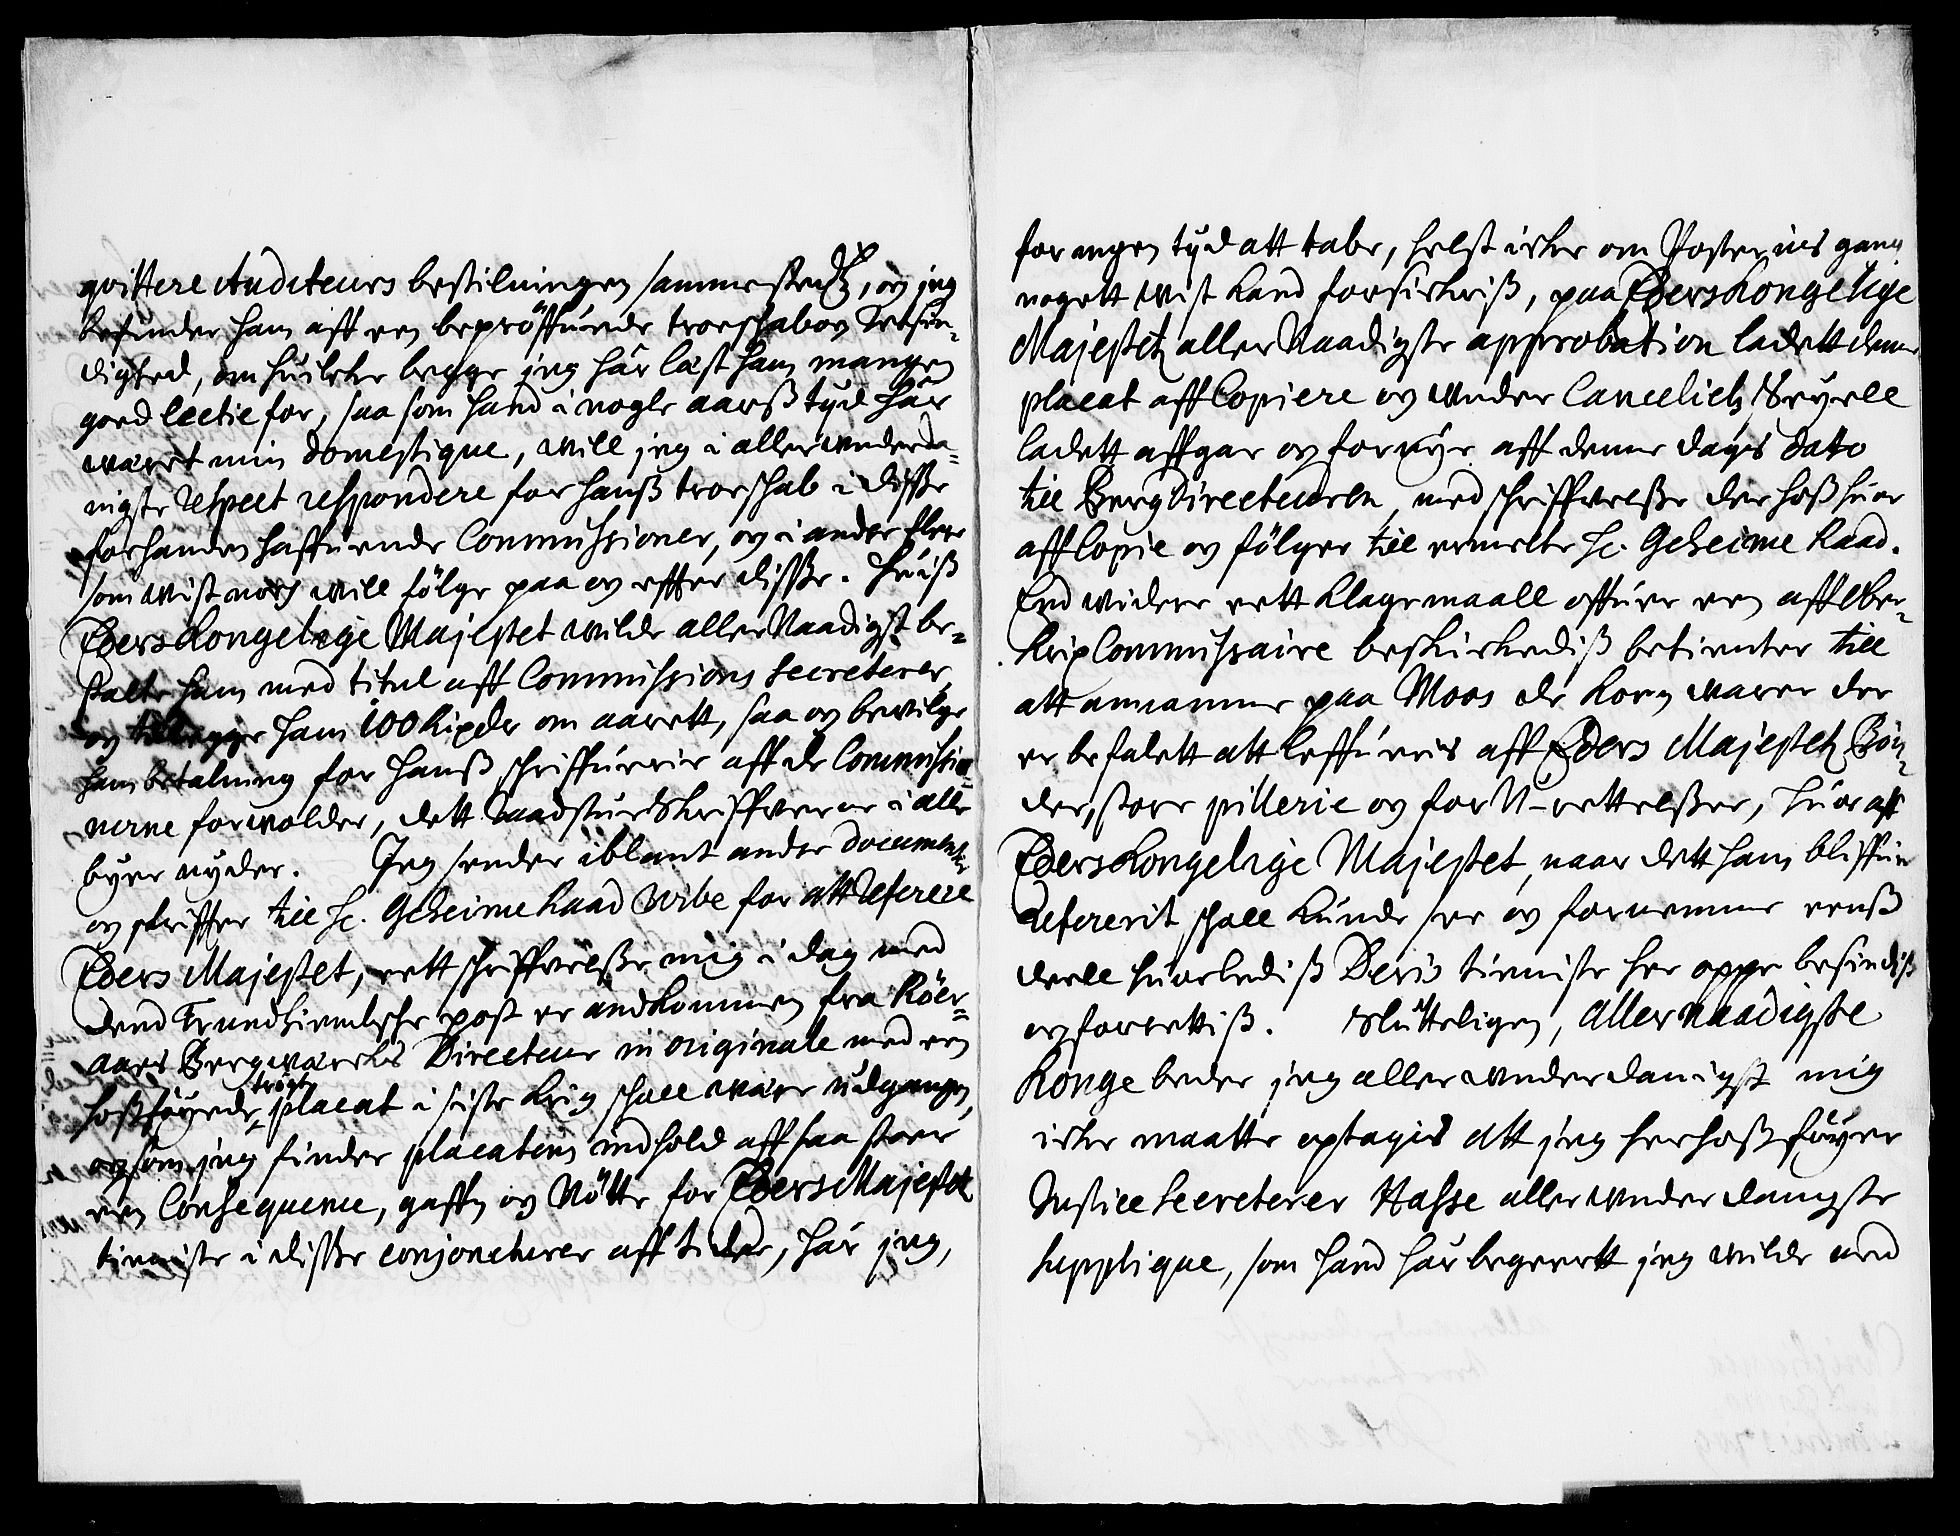 qvittere Auditeurs bestilningen sammesteds, og jeg
befinder ham aff een beprøffuende troeschab og Retsin-
dighed, om huilcke begge jeg hâr læst ham mangen
goed lectie for, saa som hand i nogle aarß tyd hâr
wærret min domestique, will jeg i allerunderda-
nigste respect respondere for hanß troeschab i disse
forhanden haffuende Commissioner, og i andre flere
som wist noch will følge paa og effter disse. Huiß
Eders Kongelige Majestet wilde aller Naadigst be-
stalte ham med titul aff Commissions Secreterer,
og tillegge ham 100 Rixdr om aarett, saa og bewilge
ham betalning for hanß schriffuerie aff de Commissio-
nerne forwolder, dett Raadstue Skriffuerne i alle
byer nyder. Jeg sender iblant andre documenter
og skriffter till H. Geheime Raad Wibe for att referere
Eders Majestet, eett schriffuelße mig i dag med
dend Trundhiembsche post er andkommen fra Röer-
aaes Bergwærcks Directeur in originale med een
hoßføyede trögt placat i siste Krig schall wære udgangen,
og som jeg finder placatens indhold aff saa stoer
een Consequence, gaffn og Nötte for Eders Majestets
tienniste i disse conjoncturer aff tider, hâr jeg,
for ingen tyd att tabe, helst icke om Posternis gang
nogett wist kand forsickriß, paa Eders Kongelige
Majestetz aller Naadigste approbation ladett denne
placat aff Copiere og under Cancelietz Seyell
ladett affgae og fornÿe aff denne dagis dato
till Berg Directeuren, med schriffuelße der hoß huor
aff Copie og følger till ermelte H. Geheime Raad.
End widere eett klagemaall offuer een aff Ober-
Krigs Commissaire beskickediß betienter till
att annamme paa Moos de korn warer der
er befalett att leffueris aff Eders Majestetz Bön-
der, store pillerie og for U-rettelßer, huor aff
Eders Kongelige Majestet, naar dett ham bliffuer
refererit, schall kunde see og fornemme eenß
deell huorlediß Deris tienniste her oppe befindiß
og forrettiß. Slutteligen, Aller Naadigste
Konge beder jeg aller underdanigst mig
icke maatte optagis att jeg herhoß föyer
Justice Secreterer Hasse aller underdanigste
Supplique, som hand hâr begeerett jeg wilde med